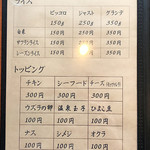 ライス
ピッコロ ジャスト グランデ
150g 250g 350g
白米 150円 250円 350円
サフランライス 150円 250円 350円
レーズンライス 150円 250円 350円
トッピング
チキン シーフード チーズ
300円 300円 300円
ウズラの卵 温泉玉子 ひよこ豆
100円 100円 100円
ナス シメジ オクラ
100円 100円 100円